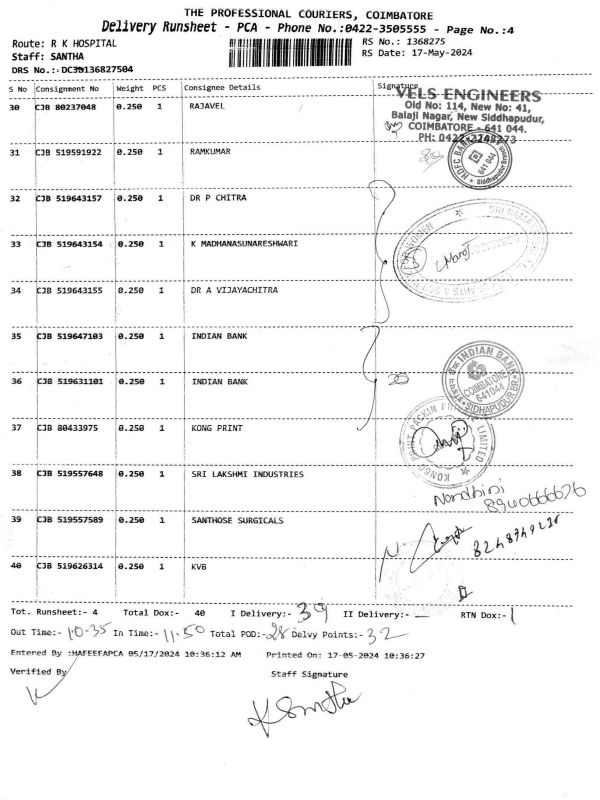 THE PROFESSIONAL COURIERS, COIMBATORE
Delivery Runsheet - PCA - Phone No.:0422-3505555 - Page No.:4
Route: R K HOSPITAL
RS No.: 1368275
Staff: SANTHA
RS Date: 17-May-2024
DRS No.:-
S No Consignment No Weight PCS Consignee Details Signature
30 CJB 80237048 0.250 1 RAJAVEL
VELS ENGINEERS
Old No: 114, New No: 41,
Balaji Nagar, New Siddhapudur,
COIMBATORE - 641 044.
31 CJB 519591922 0.250 1 RAMKUMAR
HDFC BANK
641 044
32 CJB 519643157 0.250 1 DR P CHITRA
33 CJB 519643154 0.250 1 K MADHANASUNARESHWARI
34 CJB 519643155 0.250 1 DR A VIJAYACHITRA
35 CJB 519647103 0.250 1 INDIAN BANK
INDIAN BANK
COIMBATORE
641044
SIDHAPUDUR BR
36 CJB 519631101 0.250 1 INDIAN BANK
37 CJB 80433975 0.250 1 KONG PRINT
38 CJB 519557648 0.250 1 SRI LAKSHMI INDUSTRIES
Nandhini
8940666626
39 CJB 519557589 0.250 1 SANTHOSE SURGICALS
40 CJB 519626314 0.250 1 KVB
Tot. Runsheet:- 4 Total Dox:- 40 I Delivery:- 39 II Delivery:- — RTN Dox:- 1
Out Time:- 10-35 In Time:- 11.50 Total POD:- 28 Delvy Points:- 32
Entered By :HAFEEFAPCA 05/17/2024 10:36:12 AM Printed On: 17-05-2024 10:36:27
Verified By
Staff Signature
K Santha